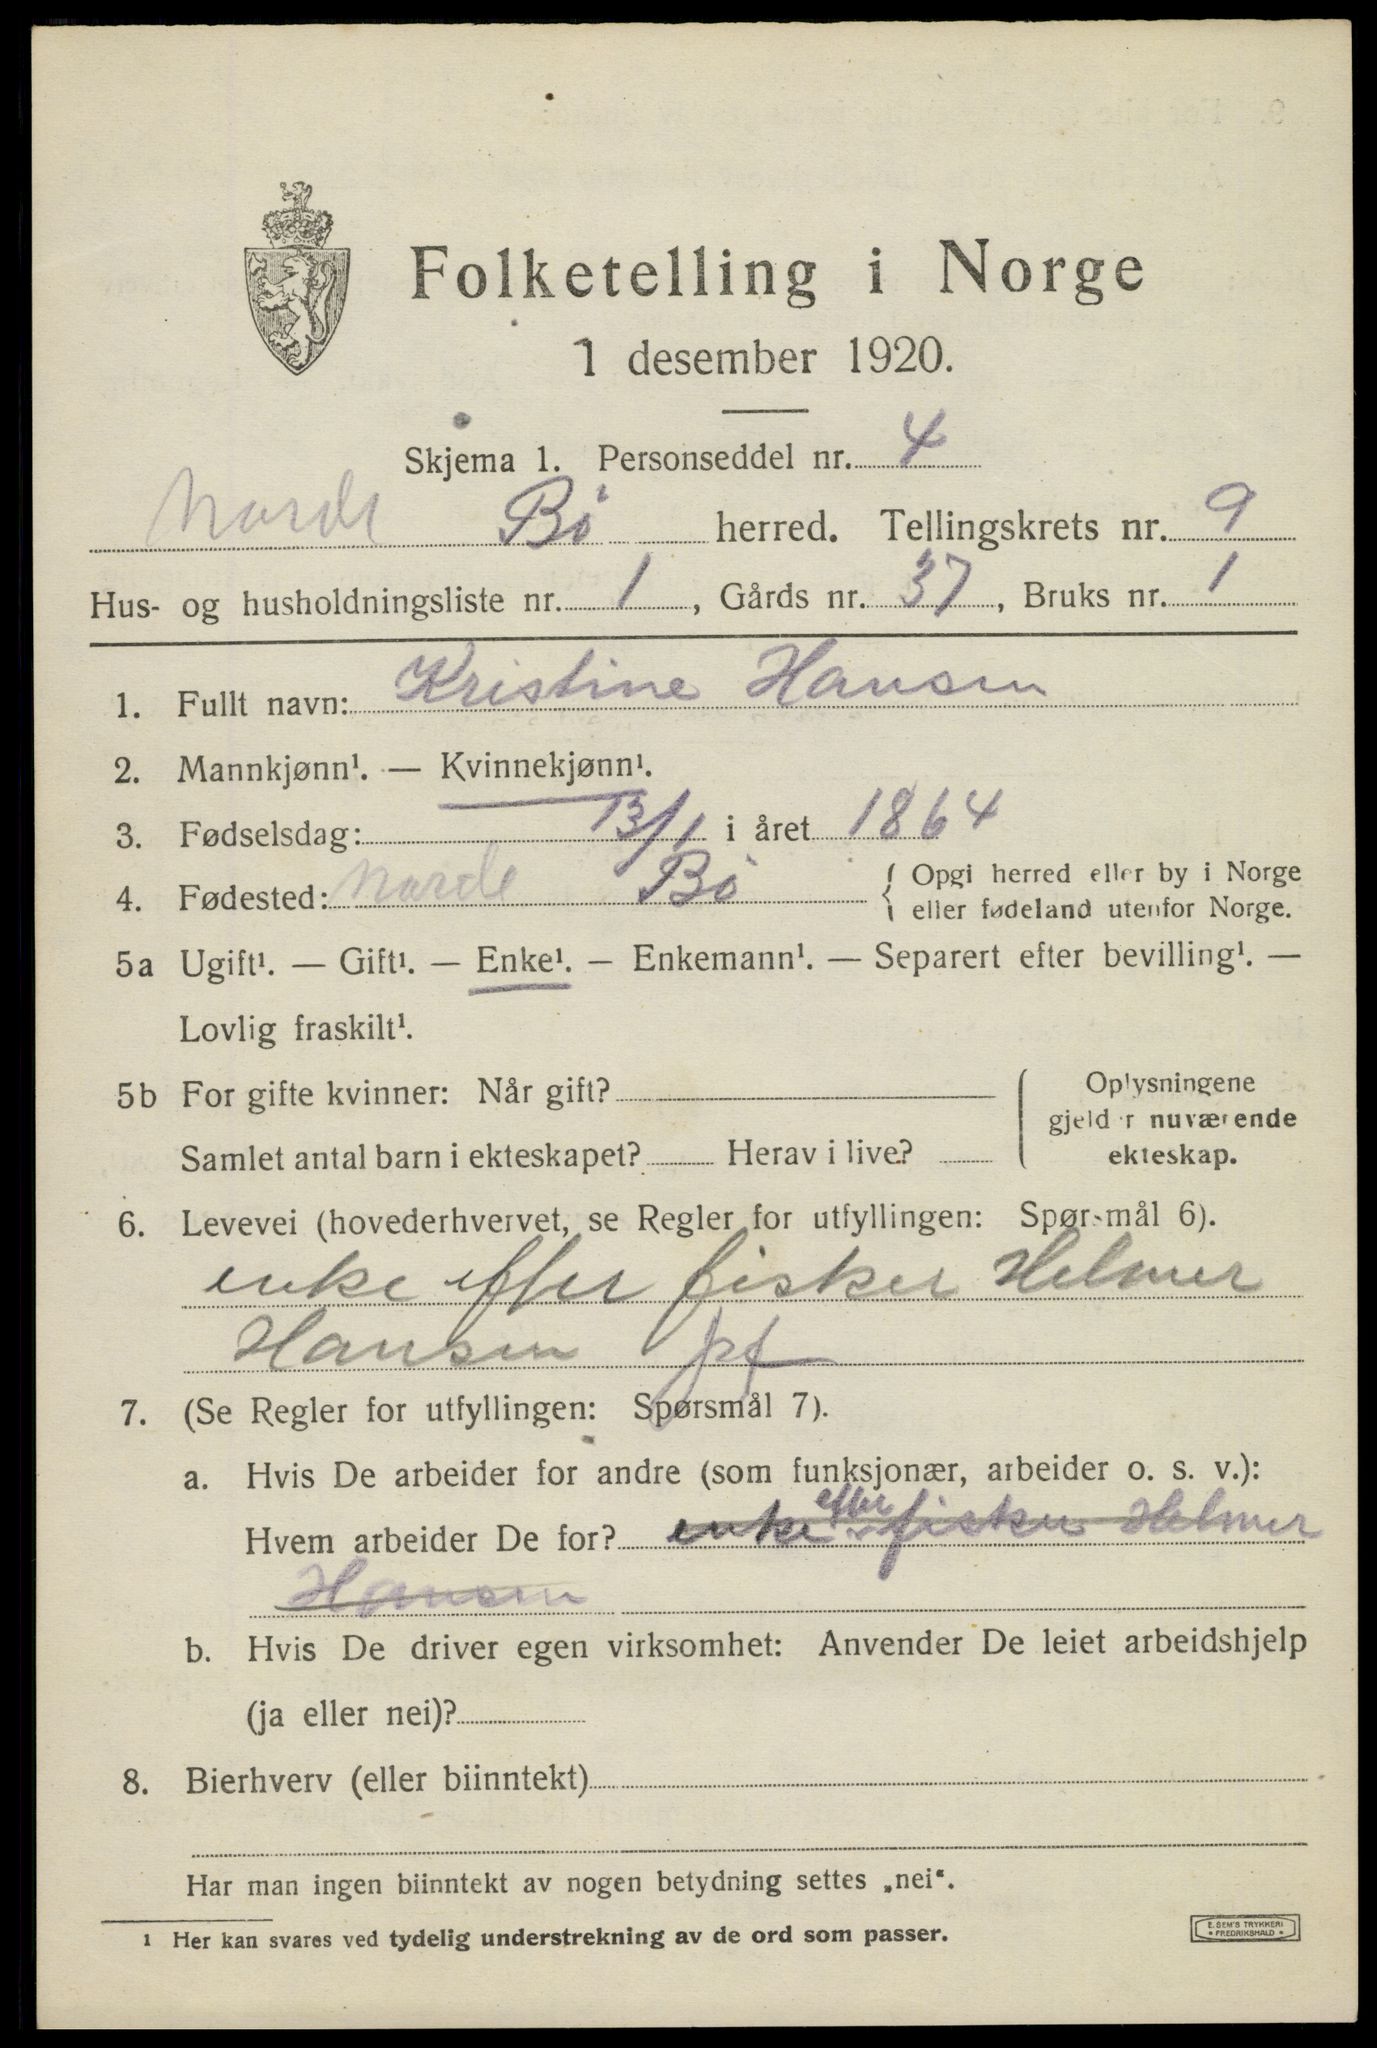 Folketelling i Norge
1 desember 1920.
Skjema 1. Personseddel nr. 4
Norde Bö herred. Tellingskrets nr. 9
Hus- og husholdningsliste nr. 1, Gårds nr. 37, Bruks nr. 1
1. Fullt navn: Kristine Hansen
2. Mannkjønn¹. — Kvinnekjønn¹.
3. Fødselsdag: 13/1 i året 1864
4. Fødested: Norde Bö { Opgi herred eller by i Norge
eller fødeland utenfor Norge.
5a Ugift¹. — Gift¹. — Enke¹. — Enkemann¹. — Separert efter bevilling¹. —
Lovlig fraskilt¹.
5b For gifte kvinner: Når gift?
Samlet antal barn i ekteskapet? Herav i live?
Oplysningene
gjelder nuværende
ekteskap.
6. Levevei (hovederhvervet, se Regler for utfyllingen: Spørsmål 6).
enke efter fisker Helmer
Hansen
7. (Se Regler for utfyllingen: Spørsmål 7).
a. Hvis De arbeider for andre (som funksjonær, arbeider o. s. v.):
Hvem arbeider De for? enke efter fisker Helmer
Hansen
b. Hvis De driver egen virksomhet: Anvender De leiet arbeidshjelp
(ja eller nei)?
8. Bierhverv (eller biinntekt)
Har man ingen biinntekt av nogen betydning settes „nei“.
1 Her kan svares ved tydelig understrekning av de ord som passer.
E. SEM'S TRYKKERI
• FREDRIKSHALD •